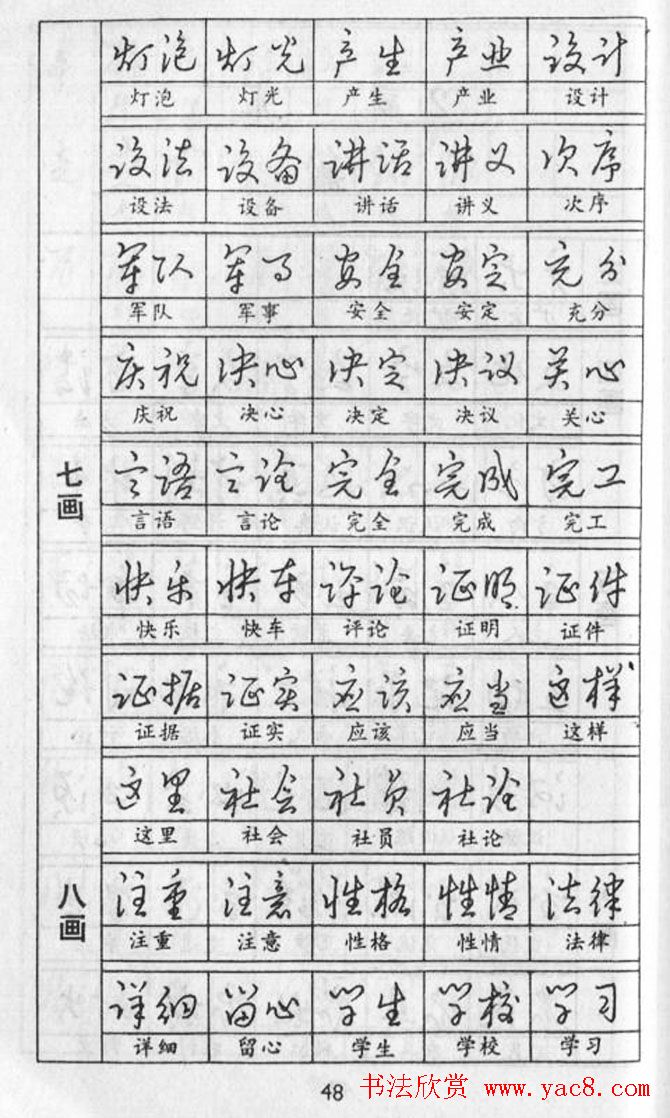 灯泡 灯光 产生 产业 设计
灯泡 灯光 产生 产业 设计
设法 设备 讲话 讲义 次序
设法 设备 讲话 讲义 次序
军队 军事 安全 安定 充分
军队 军事 安全 安定 充分
庆祝 决心 决定 决议 关心
庆祝 决心 决定 决议 关心
七画
言语 言论 完全 完成 完工
言语 言论 完全 完成 完工
快乐 快车 评论 证明 证件
快乐 快车 评论 证明 证件
证据 证实 应该 应当 这样
证据 证实 应该 应当 这样
这里 社会 社员 社论
这里 社会 社员 社论
八画
注重 注意 性格 性情 法律
注重 注意 性格 性情 法律
详细 留心 学生 学校 学习
详细 留心 学生 学校 学习
48
书法欣赏 www.yac8.com